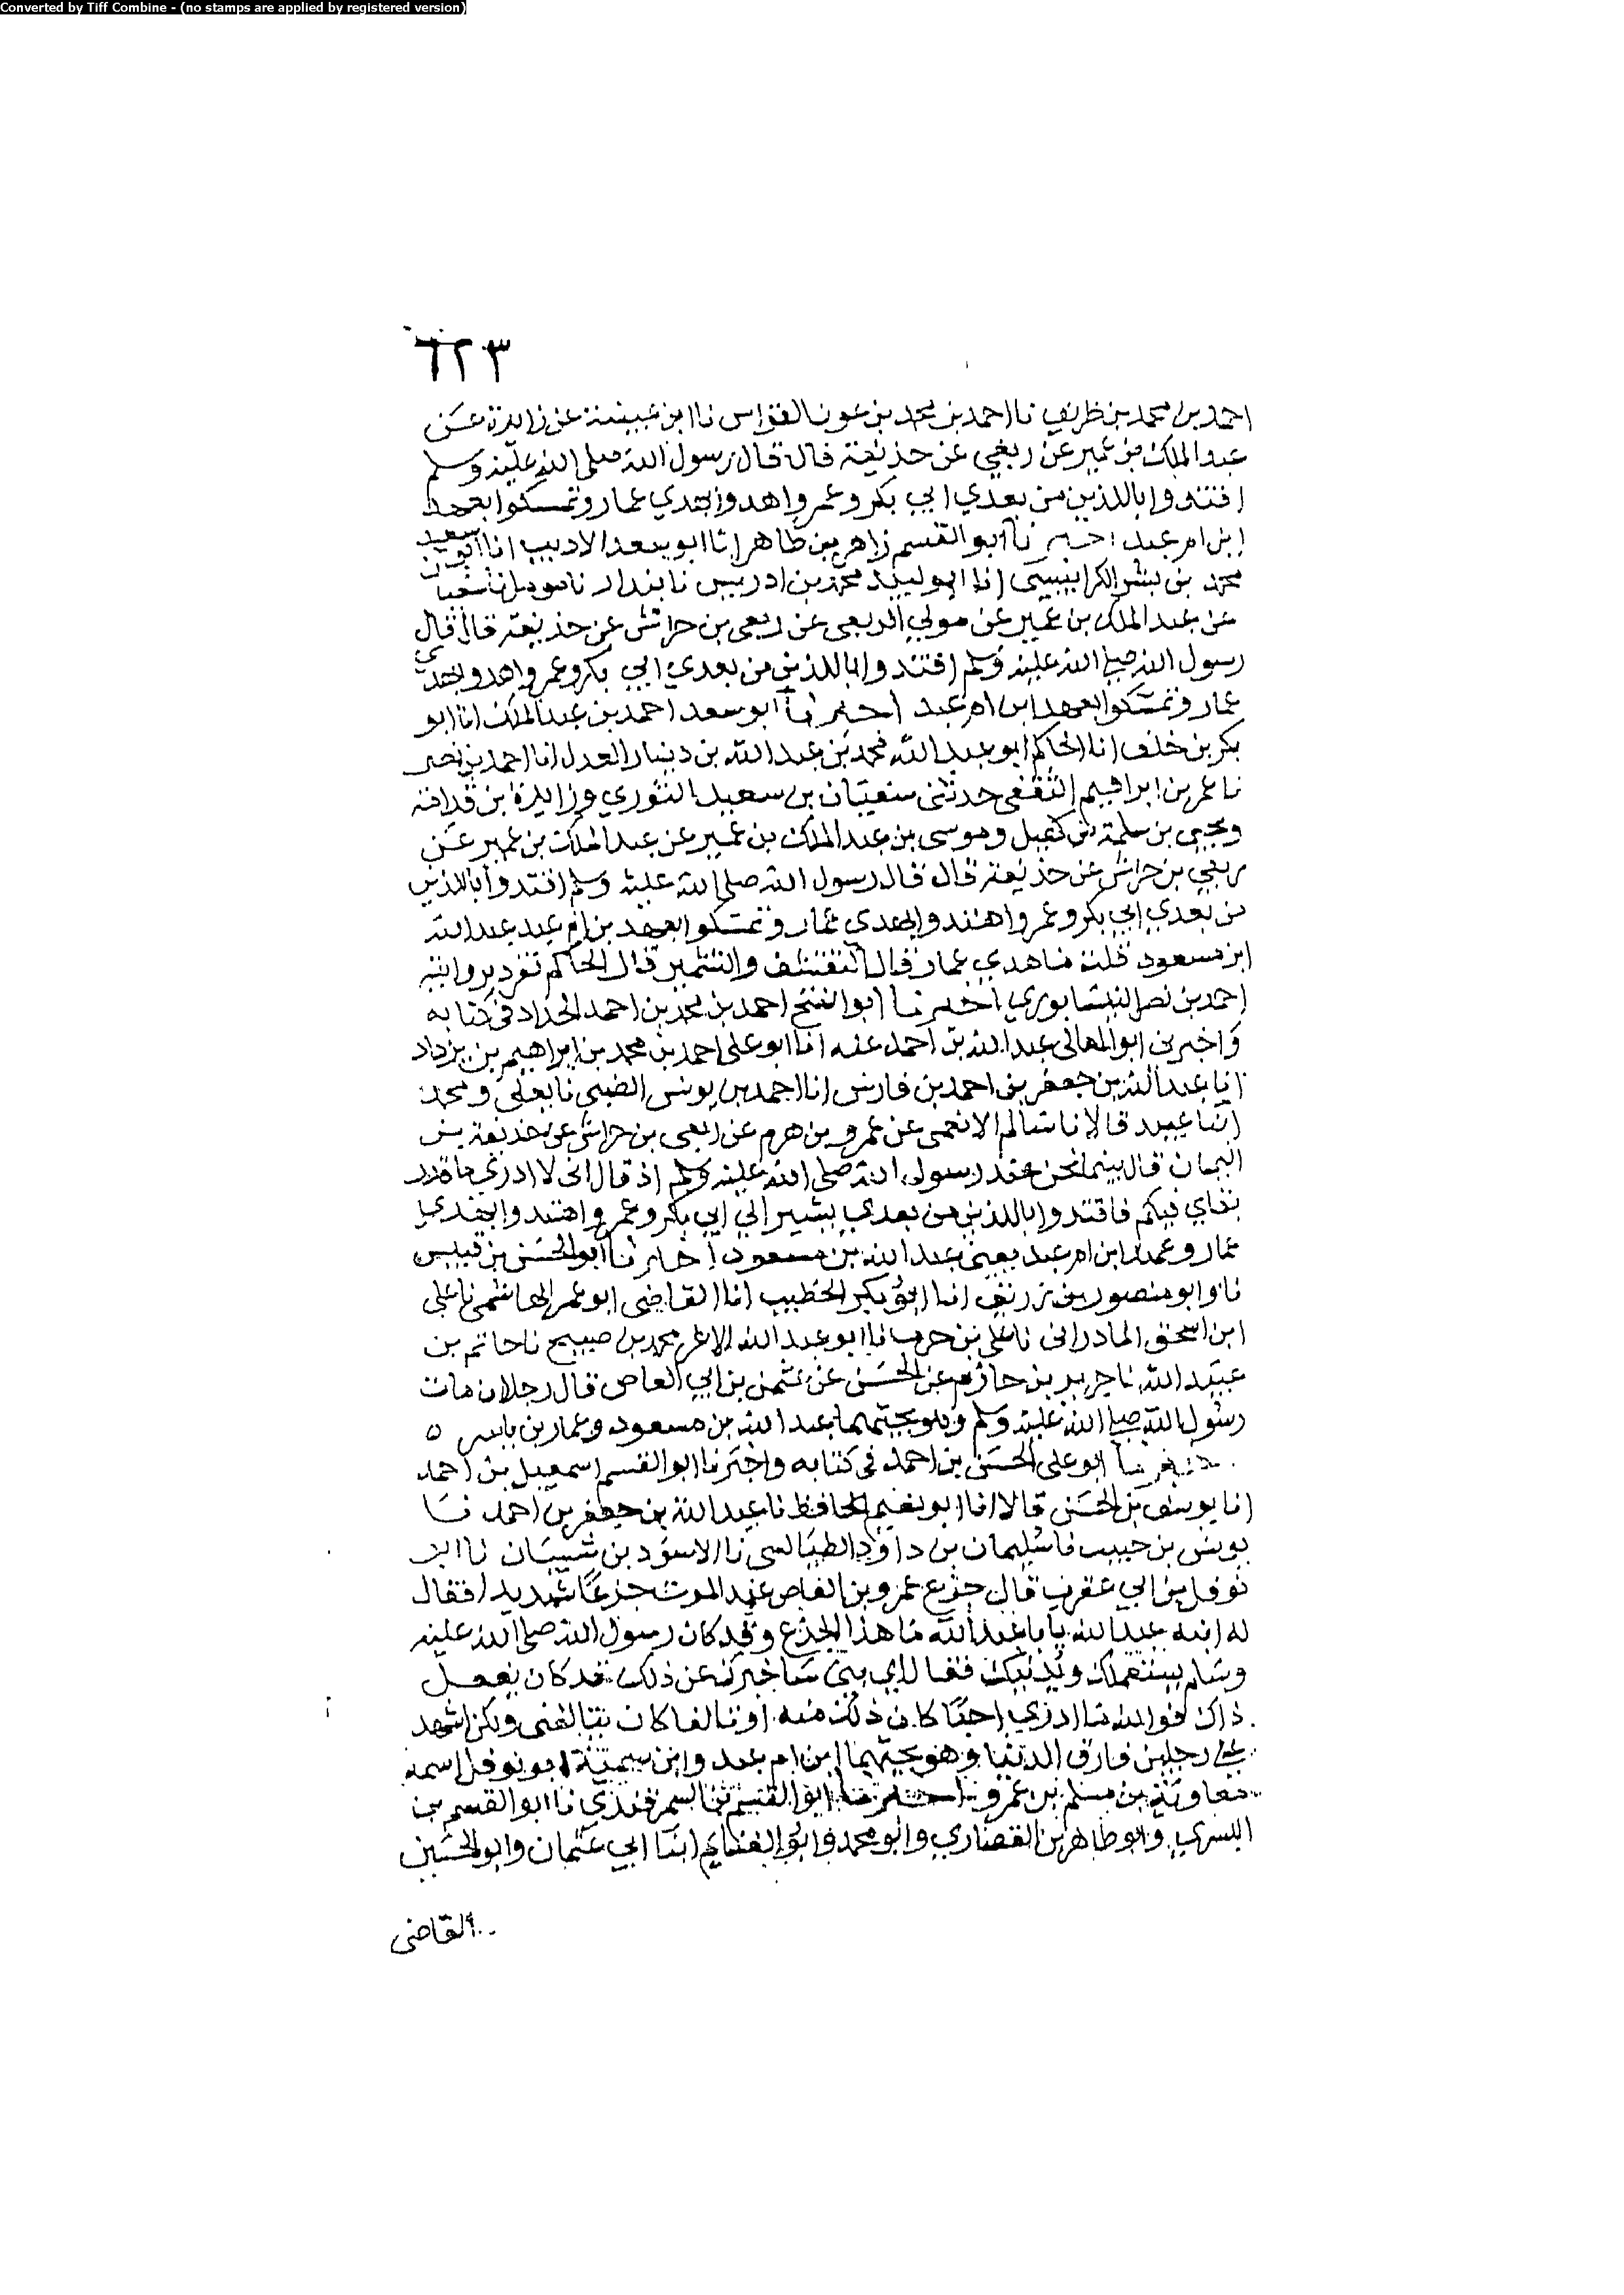 Converted by Tiff Combine - (no stamps are applied by registered version)
٦٢٣
احمد بن محمد بن ظريف نا احمد بن محمد بن عون القواس نا ابن عيينة عن زايدة عن
عبد الملك بن عمير عن ربعي عن حذيفة قال قال رسول الله صلى الله عليه وسلم
اقتدوا باللذين من بعدي ابي بكر وعمر واهدوا بهدي عمار وتمسكوا بعهد
ابن ام عبد اخبرنا ابو القسم زاهر بن طاهر انا ابو سعد الاديب انا ابو سعيد
محمد بن بشر الكرابيسي انا ابو لبيد محمد بن ادريس نا بندار نا نا سفيان
عن عبد الملك بن عمير عن مولي الربعي عن ربعي بن حراش عن حذيفة قال قال
رسول الله صلى الله عليه وسلم اقتدوا باللذين من بعدي ابي بكر وعمر واهدوا بهدي
عمار وتمسكوا بعهد ابن ام عبد اخبرنا ابو سعد احمد بن عبد الملك انا ابو
بكر بن خلف انا الحاكم ابو عبد الله محمد بن عبد الله بن دينار العدل انا احمد بن نصر
نا عمر بن ابراهيم الثقفي حدثني سفيان بن سعيد الثوري وزايدة بن قدامة
ويحيى بن سلمة بن كهيل وموسى بن عبد الملك بن عمير عن عبد الملك بن عمير عن
ربعي بن حراش عن حذيفة قال قال رسول الله صلى الله عليه وسلم اقتدوا باللذين
من بعدي ابي بكر وعمر واهتدوا بهدى عمار وتمسكوا بعهد بن ام عبد عبد الله
ابن مسعود قلت ما هدي عمار قال التقشف والتشمير قال الحاكم تفرد بروايته
احمد بن نصر النيشابوري اخبرنا ابو الفتح احمد بن محمد بن احمد الحداد في كتابه
واخبرني ابو المعالى عبد الله بن احمد عنه انا ابو على احمد بن محمد بن ابراهيم بن يزداد
انا عبد الله بن جعفر بن احمد بن فارس انا احمد بن يونس الضبى نا يعلى ومحمد
ابنا عبيد قالا نا سالم الانعمى عن عمرو بن هرم عن ربعي بن حراش عن حذيفة بن
اليمان قال بينما نحن عند رسول الله صلى الله عليه وسلم اذ قال انى لا ادري ما قدر
بقاي فيكم فاقتدوا باللذين من بعدي يشير الي ابي بكر وعمر واهتدوا بهدي
عمار وعهد ابن ام عبد يعنى عبد الله بن مسعود اخبرنا ابو الحسن بن قبيس
نا وابو منصور بن زريق انا ابو بكر الخطيب انا القاضي ابو عمر الهاشمى نا على
ابن اسحق المادرانى نا على بن حرب نا ابو عبد الله الاغر محمد بن صبيح نا حاتم بن
عبيد الله نا جرير بن حازم عن الحسن عن عثمن بن ابي العاص قال رجلان مات
رسول الله صلى الله عليه وسلم وهو يحبهما عبد الله بن مسعود وعمار بن ياسر ه
اخبرنا ابو على الحسن بن احمد فى كتابه واخبرنا ابو القسم اسمعيل بن احمد
انا يوسف بن الحسن قالا انا ابو نعيم الحافظ نا عبد الله بن جعفر بن احمد نا
يونس بن حبيب نا سليمان بن داود الطيالسى نا الاسود بن شيبان نا ابو
نوفل بن ابي عقرب قال جزع عمرو بن العاص عند الموت جزعا شديدا فقال
له ابنه عبد الله يابا عبد الله ما هذا الجزع وقد كان رسول الله صلى الله عليه
وسلم يستعملك ويدنيك فقال اي بنى ساخبرك عن ذلك قد كان يفعل
ذاك فوالله ما ادري احبا كان ذلك منه او تالفا كان يتالفنى ولكن اشهد
على رجلين فارق الدنيا وهو يحبهما ابن ام عبد وابن سمية ابو نوفل اسمه
معاوية بن مسلم بن عمرو اخبرنا ابو القسم بن السمرقندي نا ابو القسم بن
البسري وابو طاهر بن القصاري وابو محمد وابو الغنايم ابنا ابي عثمان وابو الحسين
القاضى